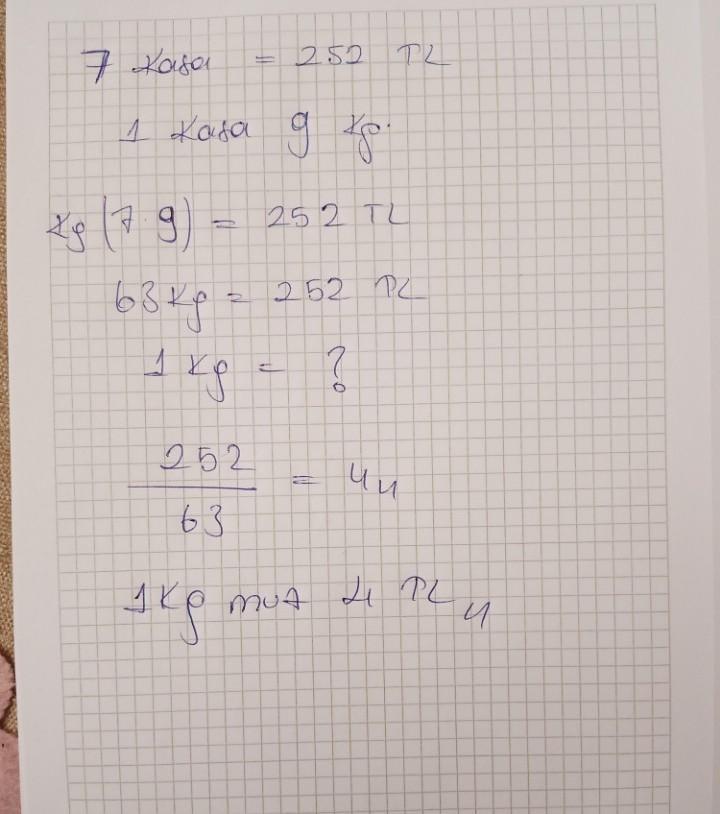 7 Kasa = 252 TL
1 Kasa 9 Kg.
Kg (7.9) = 252 TL
63 Kg = 252 TL
1 Kg = ?
252
63
= 4
1 Kg muz 4 TL